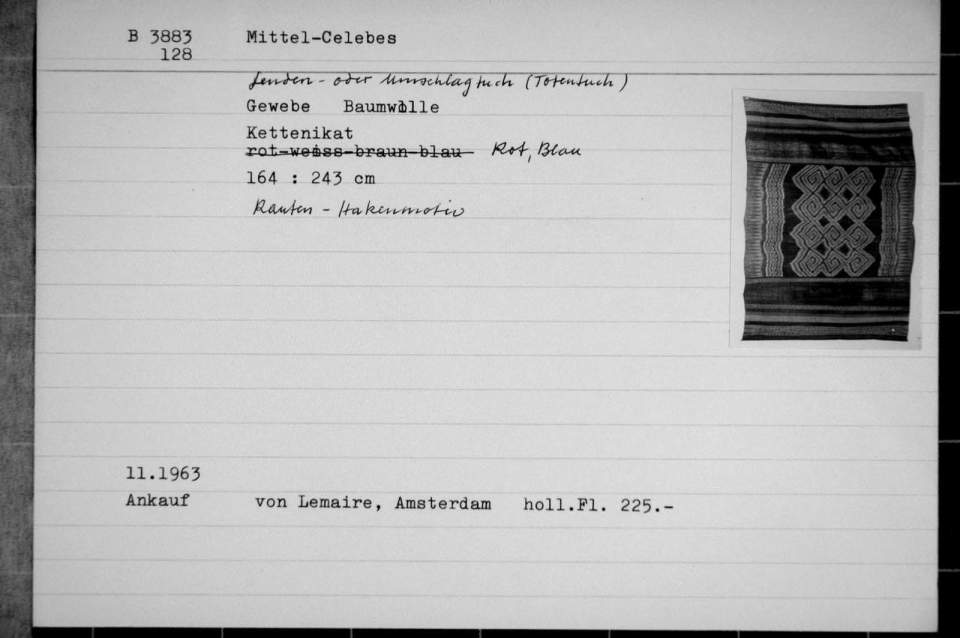 B 3883 Mittel-Celebes
128
Lenden- oder Umschlagtuch (Totentuch)
Gewebe Baumwolle
Kettenikat
rot-weiss-braun-blau Rot, Blau
164 : 243 cm
Rauten - Hakenmotiv
11.1963
Ankauf von Lemaire, Amsterdam holl.Fl. 225.-